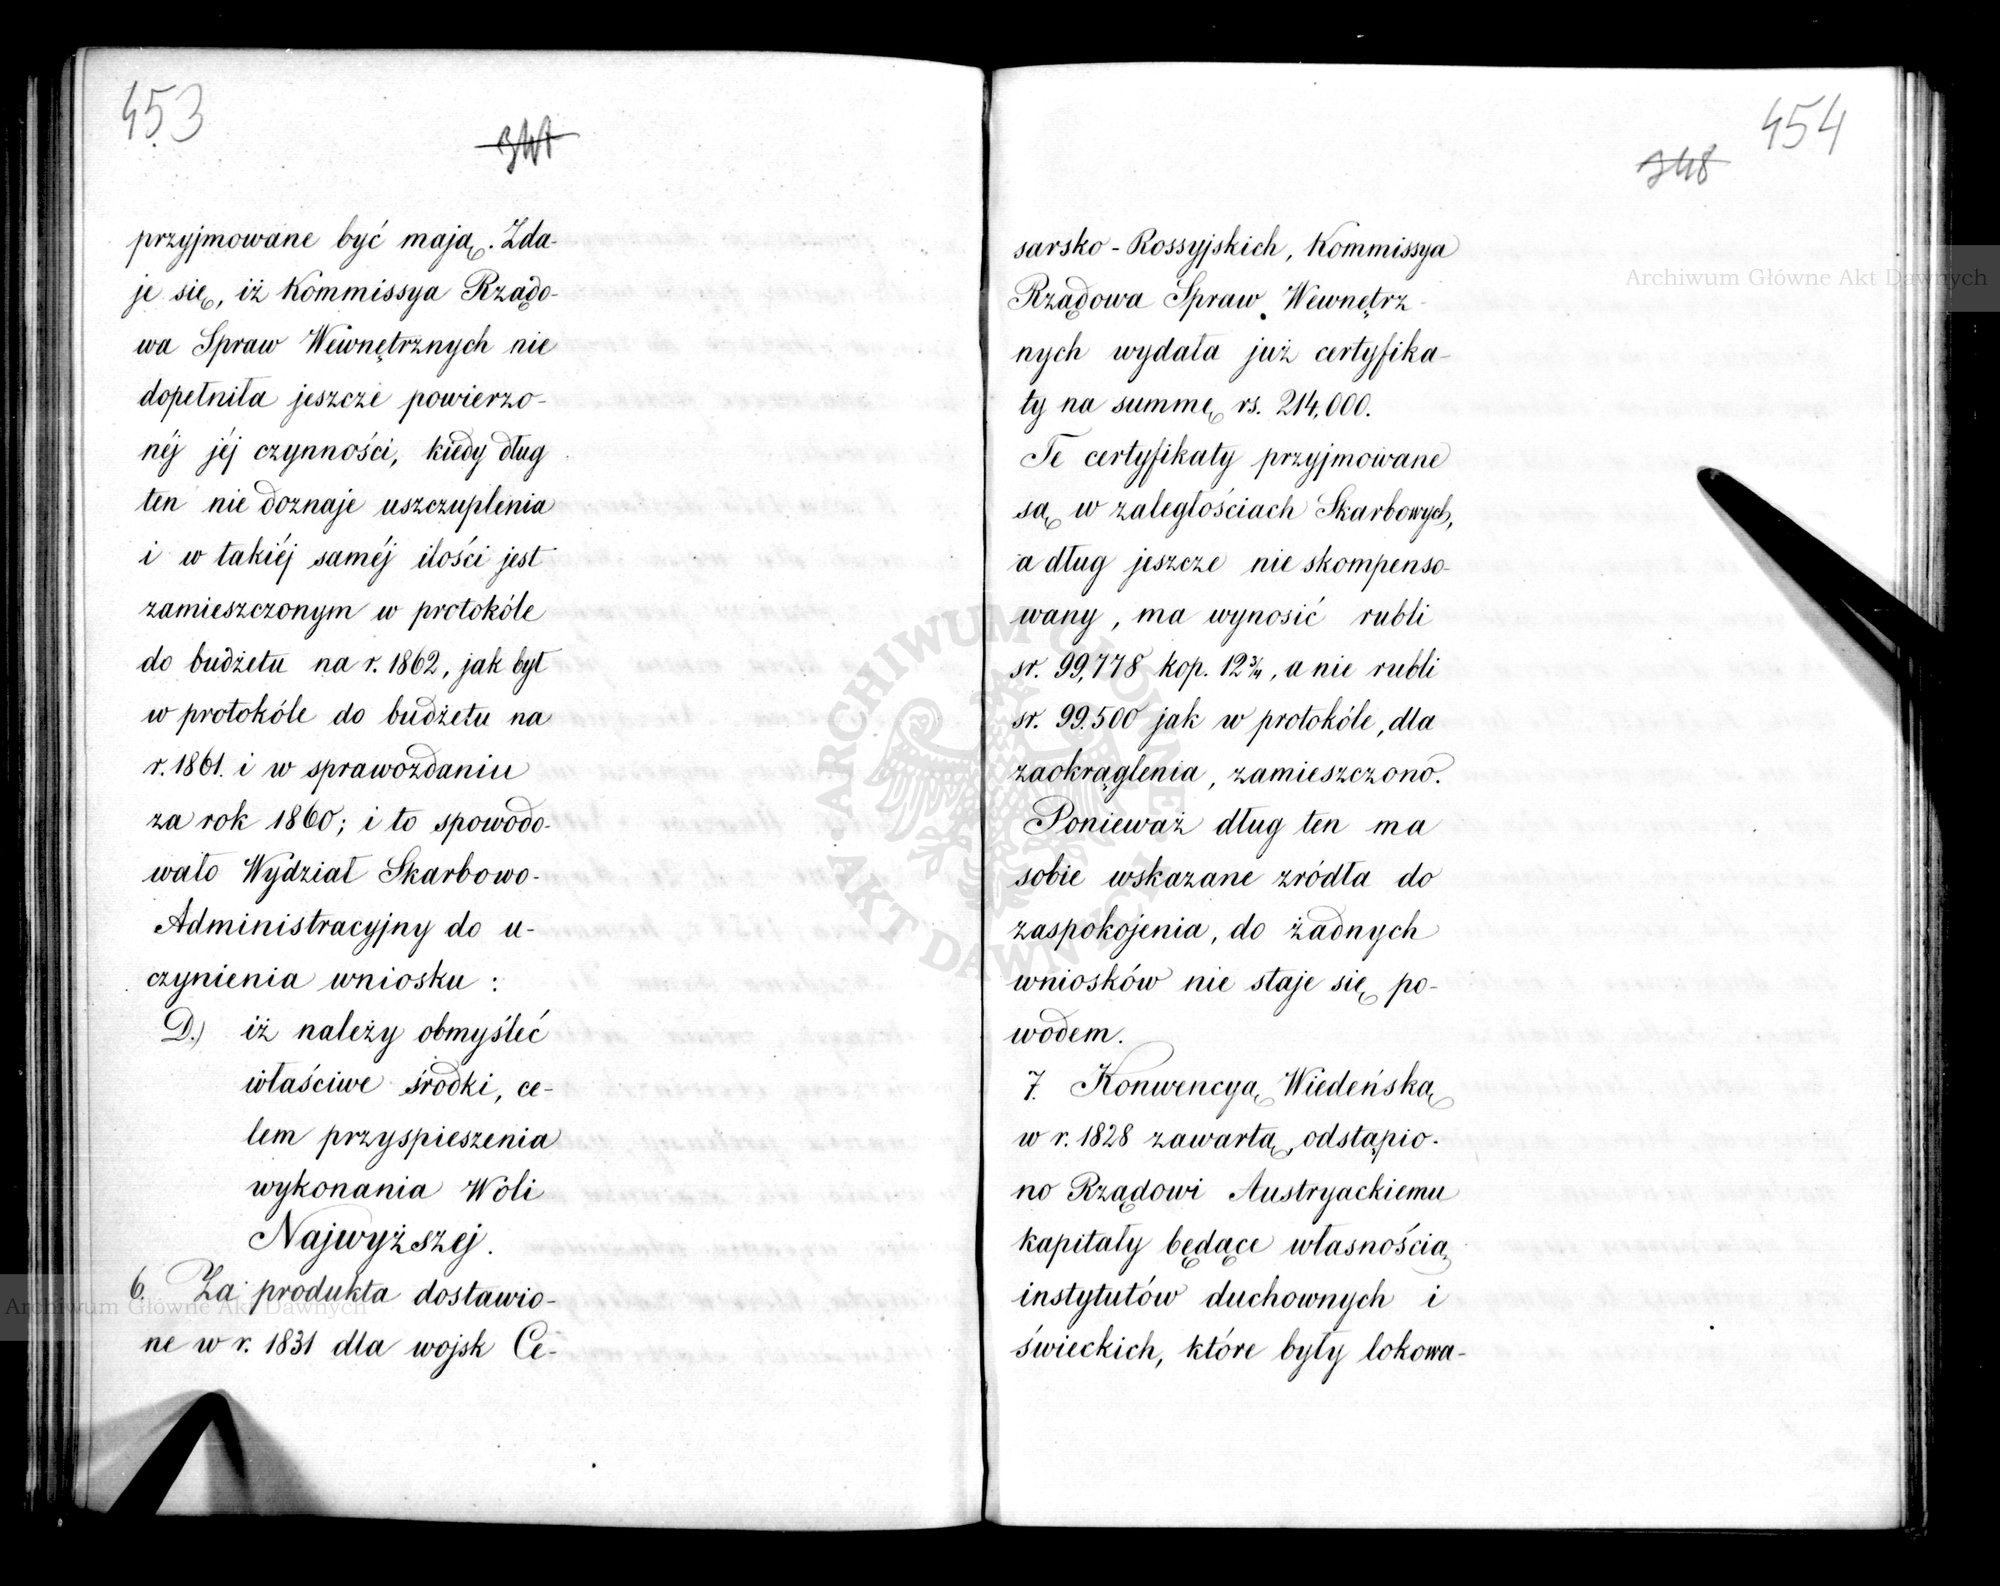 453
347
przyjmowane być mają. Zda-
je się, iż Kommissya Rządo-
wa Spraw Wewnętrznych nie
dopełniła jeszcze powierzo-
néj jéj czynności, kiedy dług
ten nie doznaje uszczuplenia
i w takiéj saméj ilości jest
zamieszczonym w protokóle
do budżetu na r. 1862, jak był
w protokóle do budżetu na
r. 1861. i w sprawozdaniu
za rok 1860; i to spowodo-
wało Wydział Skarbowo-
Administracyjny do u-
czynienia wniosku:
D.) iż należy obmyśleć
właściwe środki, ce-
lem przyspieszenia
wykonania Woli
Najwyższej.
6. Za produkta dostawio-
ne w r. 1831 dla wojsk Ce-
454
348
sarsko-Rossyjskich, Kommissya
Rządowa Spraw Wewnętrz-
nych wydała już certyfika-
ty na summę rs. 214,000.
Te certyfikaty przyjmowane
są w zaległościach Skarbowych,
a dług jeszcze nie skompenso-
wany, ma wynosić rubli
sr. 99,778 kop. 12¾, a nie rubli
sr. 99.500 jak w protokóle, dla
zaokrąglenia, zamieszczono.
Ponieważ dług ten ma
sobie wskazane zródła do
zaspokojenia, do żadnych
wniosków nie staje się po-
wodem.
7. Konwencyą Wiedeńską
w r. 1828 zawartą, odstąpio-
no Rządowi Austryackiemu
kapitały będące własnością
instytutów duchownych i
świeckich, które były lokowa-
Archiwum Główne Akt Dawnych
Archiwum Główne Akt Dawnych
ARCHIWUM GŁÓWNE AKT DAWNYCH